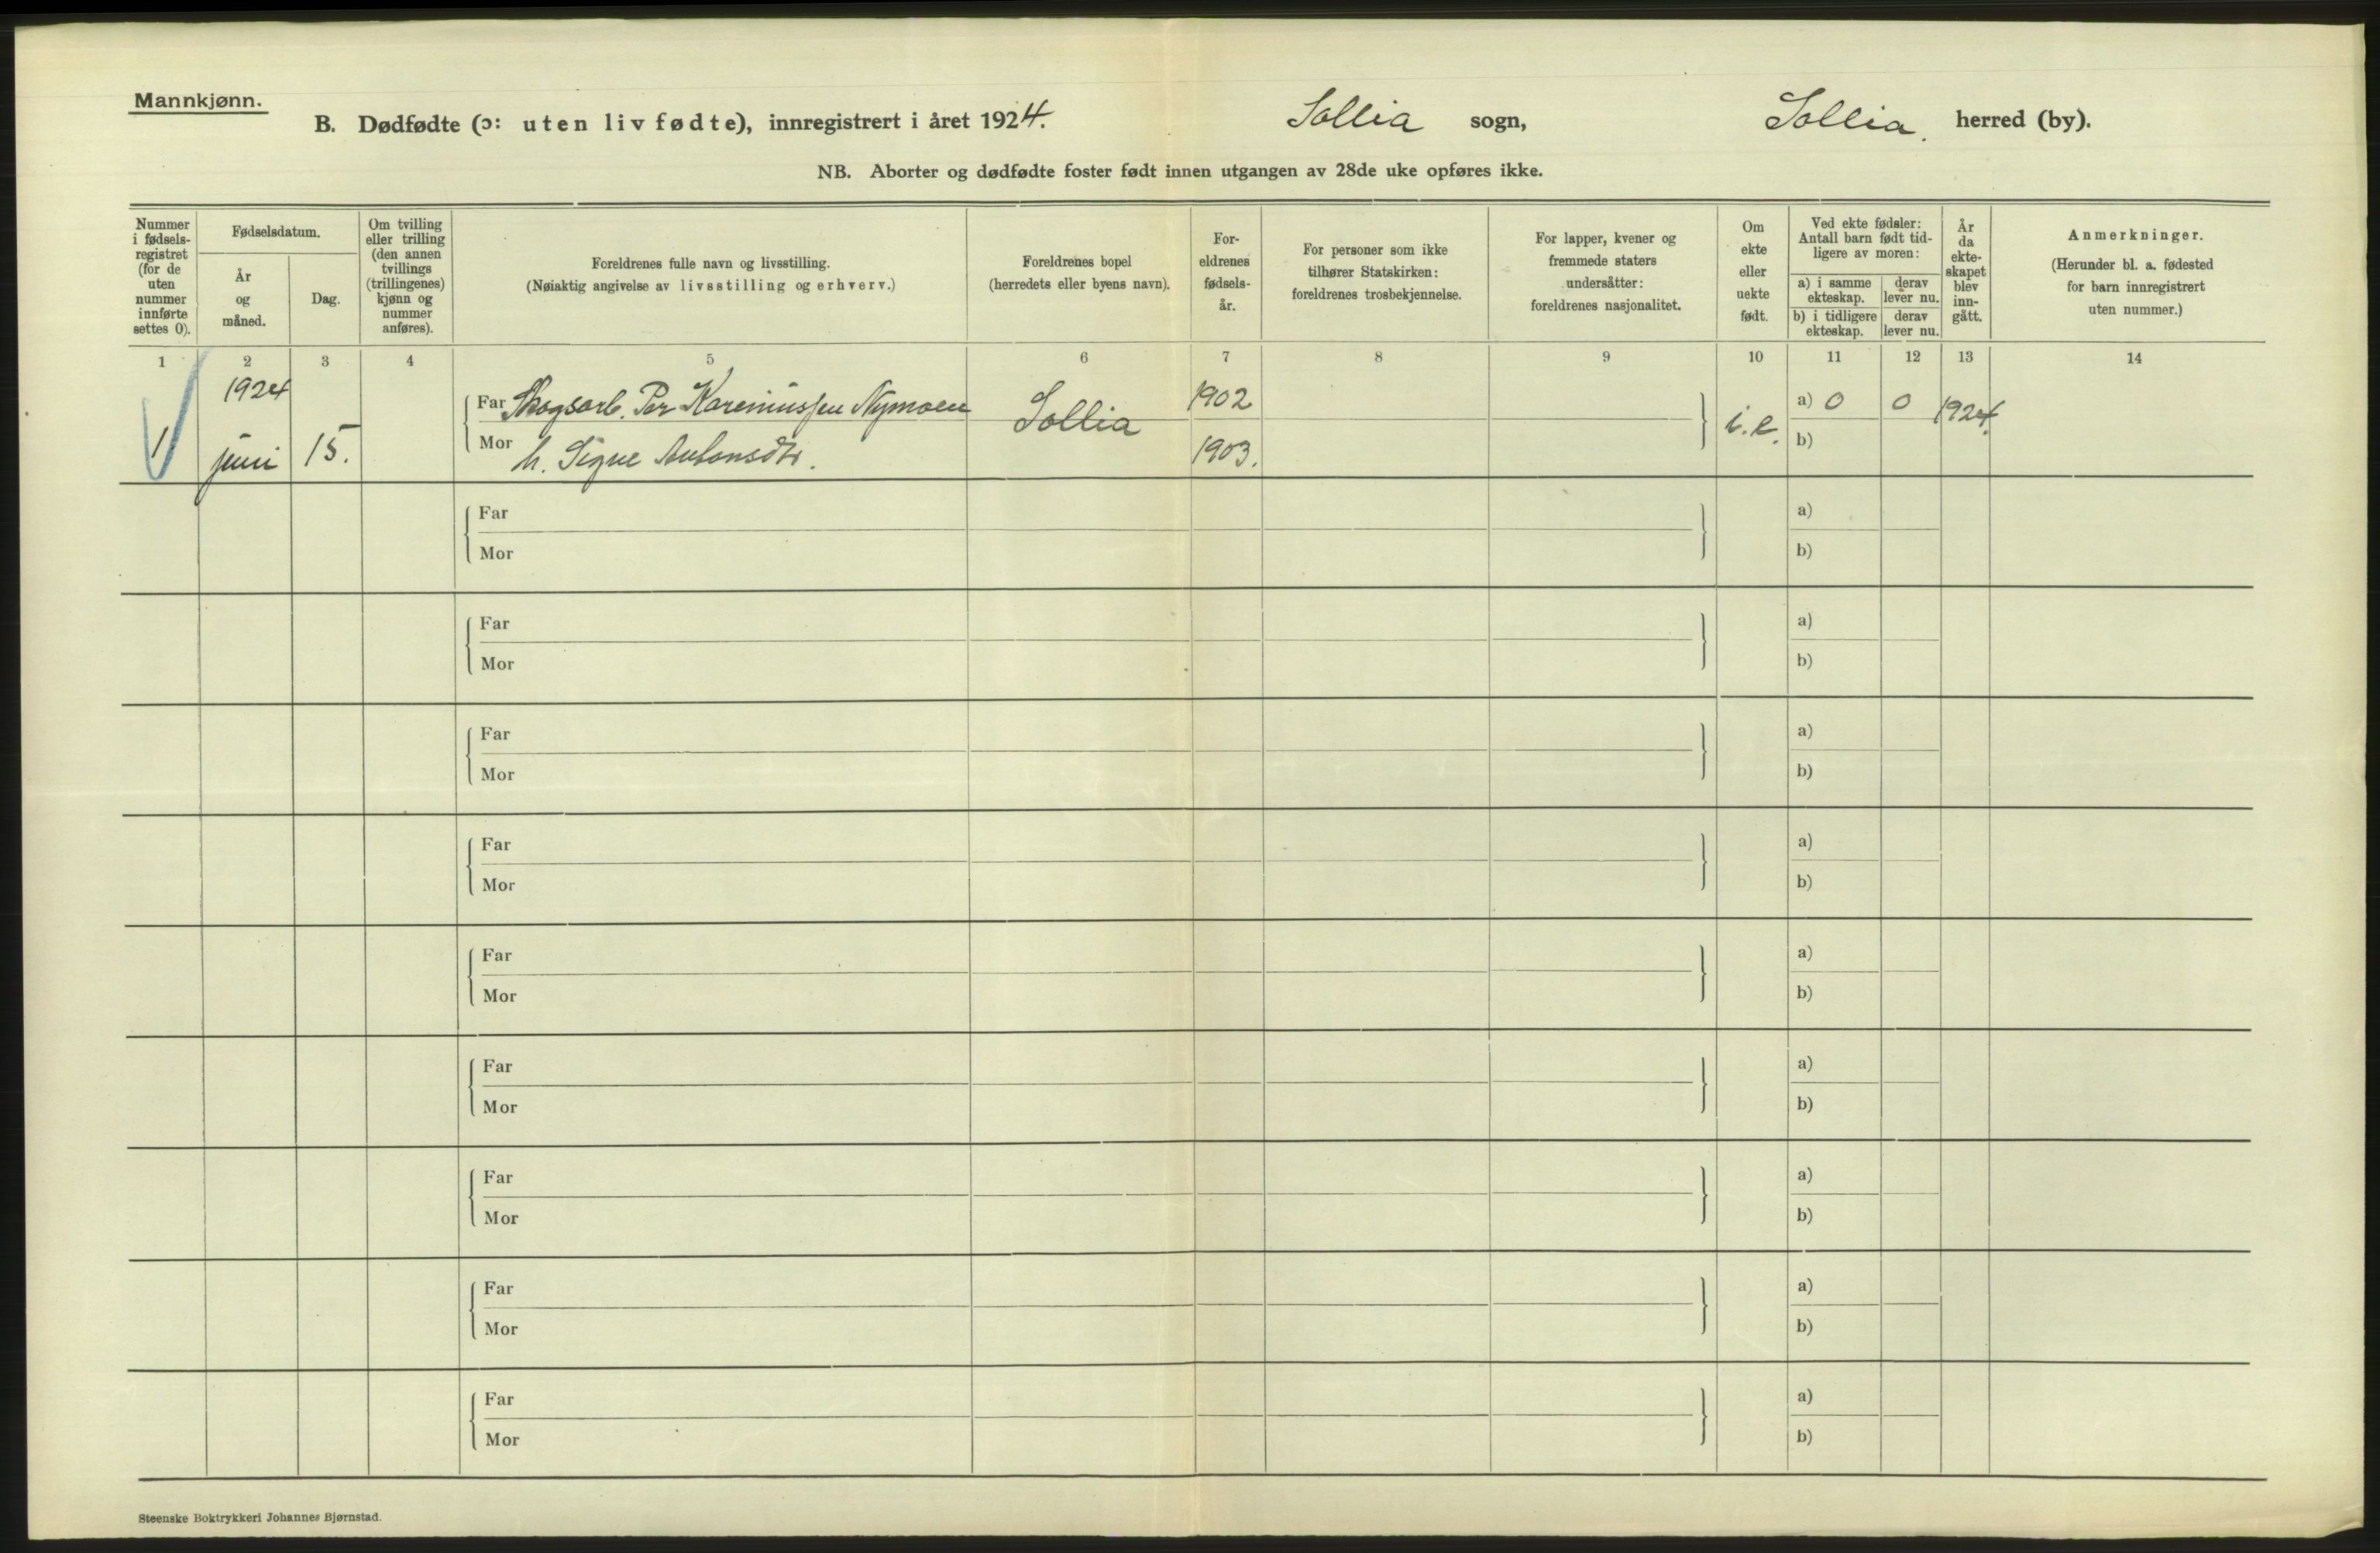 Mannkjønn.
B. Dødfødte (ɔ: uten liv fødte), innregistrert i året 1924. Sollia sogn, Sollia. herred (by).
NB. Aborter og dødfødte foster født innen utgangen av 28de uke opføres ikke.
Nummer i fødsels- registret (for de uten nummer innførte settes 0).
Fødselsdatum.
År og måned.
Dag.
Om tvilling eller trilling (den annen tvillings (trillingenes) kjønn og nummer anføres).
Foreldrenes fulle navn og livsstilling.
(Nøiaktig angivelse av livsstilling og erhverv.)
Foreldrenes bopel
(herredets eller byens navn).
For- eldrenes fødsels- år.
For personer som ikke tilhører Statskirken: foreldrenes trosbekjennelse.
For lapper, kvener og fremmede staters undersåtter: foreldrenes nasjonalitet.
Om ekte eller uekte født.
Ved ekte fødsler: Antall barn født tid- ligere av moren:
a) i samme ekteskap.
derav lever nu.
b) i tidligere ekteskap.
derav lever nu.
År da ekte- skapet blev inn- gått.
Anmerkninger.
(Herunder bl. a. fødested for barn innregistrert uten nummer.)
1 2 3 4 5 6 7 8 9 10 11 12 13 14
1924
Far Skogsarb. Per Kareniussen Nymoen Sollia 1902 i.e. a) 0 0 1924.
1 juni 15.
Mor h. Signe Antonsdtr. 1903. b)
Far a)
Mor b)
Far a)
Mor b)
Far a)
Mor b)
Far a)
Mor b)
Far a)
Mor b)
Far a)
Mor b)
Far a)
Mor b)
Far a)
Mor b)
Far a)
Mor b)
Steenske Boktrykkeri Johannes Bjørnstad.